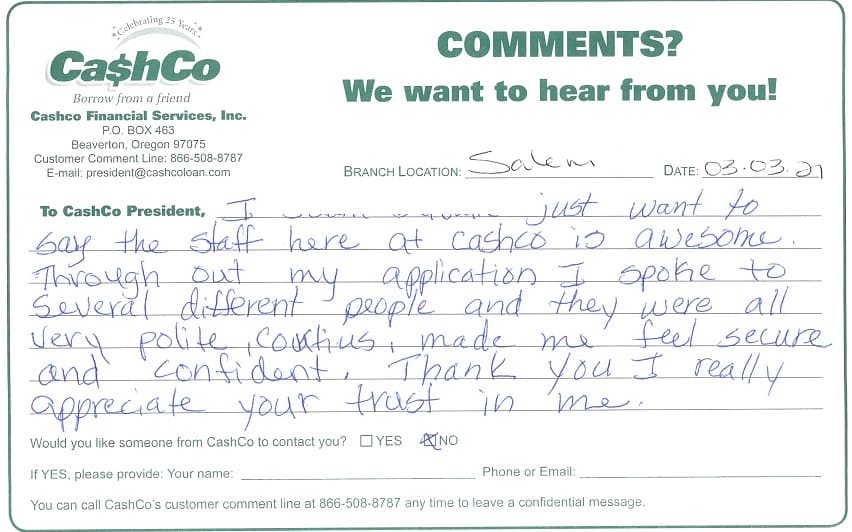 Celebrating 25 Years
Ca$hCo
Borrow from a friend
Cashco Financial Services, Inc.
P.O. BOX 463
Beaverton, Oregon 97075
Customer Comment Line: 866-508-8787
E-mail: president@cashcoloan.com
COMMENTS?
We want to hear from you!
BRANCH LOCATION: Salem DATE: 03.03.21
To CashCo President, I just want to
say the staff here at cashco is awesome.
Through out my application I spoke to
several different people and they were all
very polite, courtius, made me feel secure
and confident. Thank you I really
appreciate your trust in me.
Would you like someone from CashCo to contact you? YES NO
If YES, please provide: Your name: Phone or Email:
You can call CashCo's customer comment line at 866-508-8787 any time to leave a confidential message.